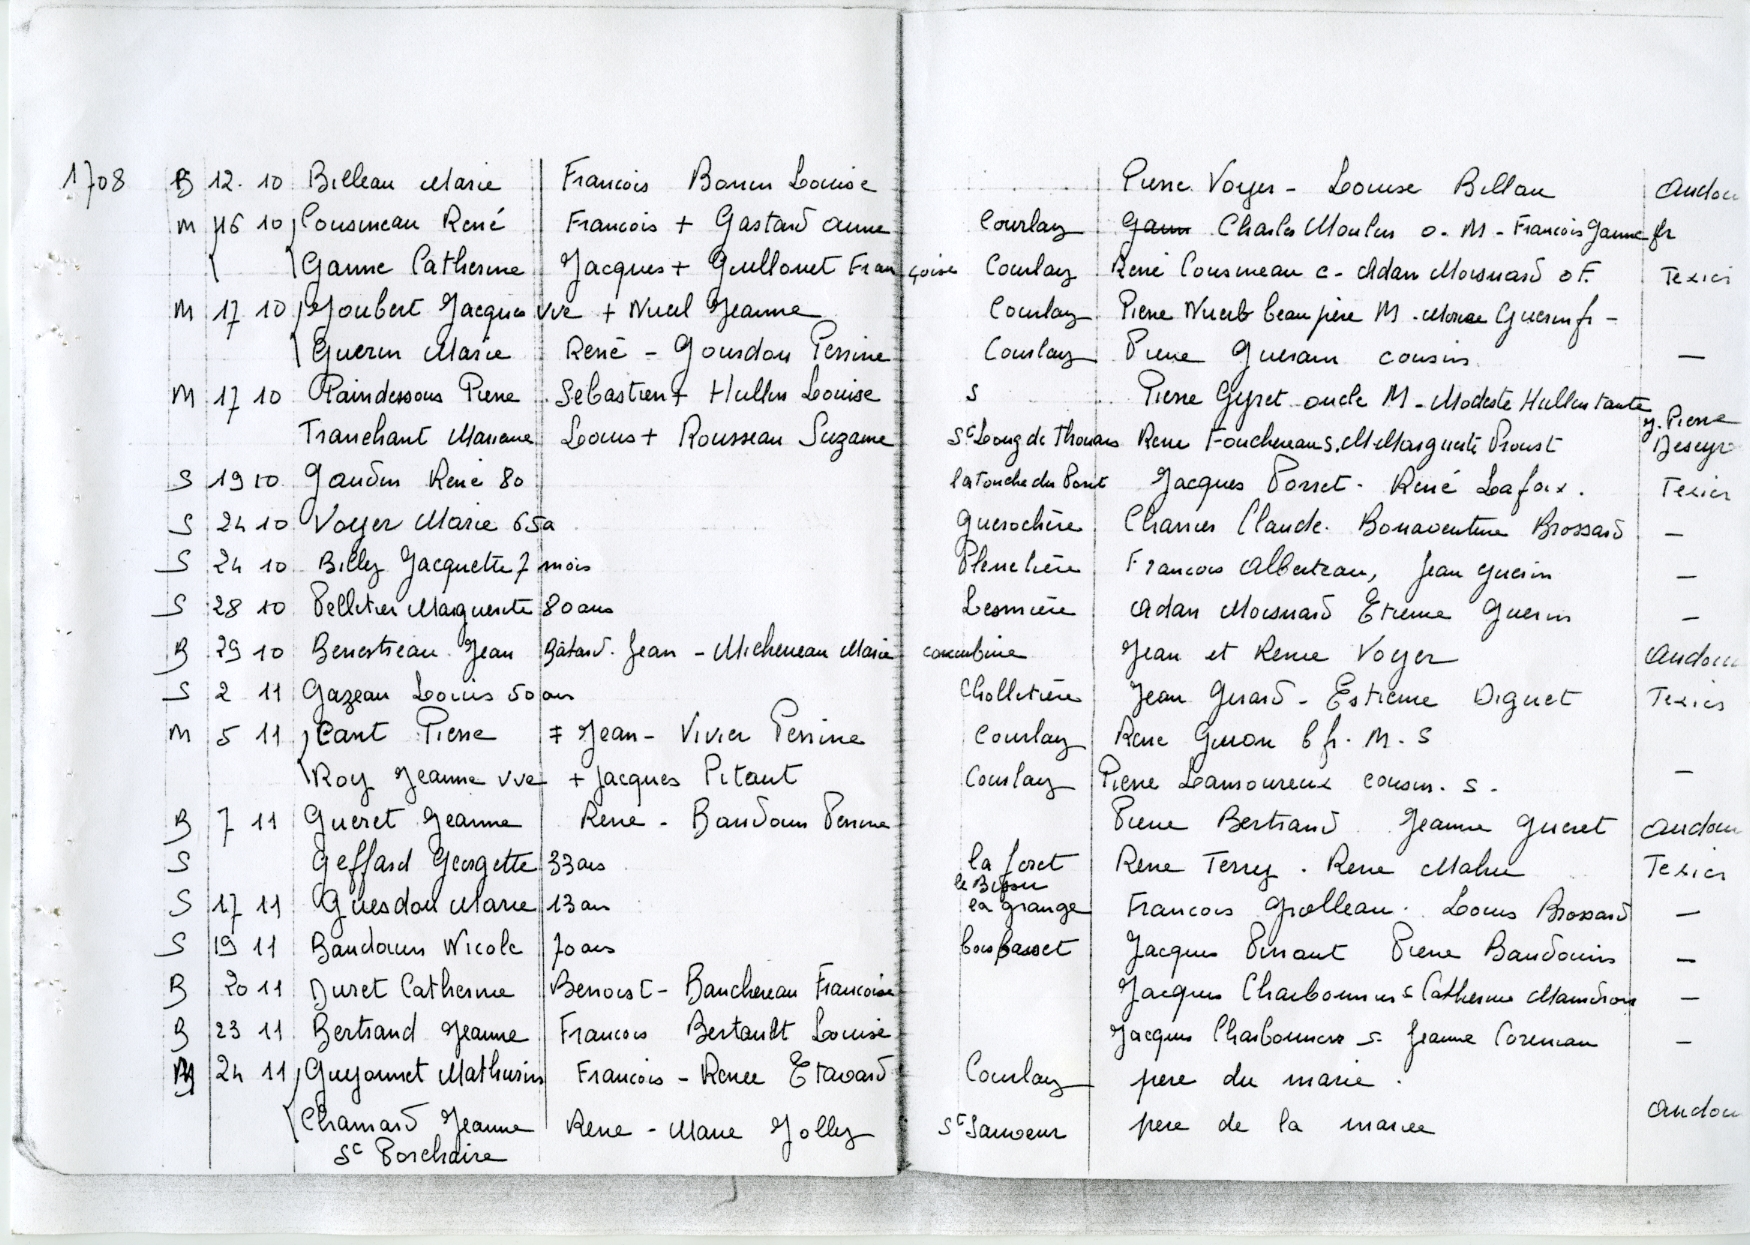 1708 B 12. 10 Billeau Marie Francois Bonin Louise Pierre Voyer - Louise Billau Audou
M 16 10 Cousineau René Francois + Gastard Anne Courlay Gann Charles Moulin o. M - Francois Ganne fr
Ganne Catherine Jacques + Guillouet Françoise Courlay René Cousineau c - Adan Moisnard o F. Texier
M 17 10 Joubert Jacques vve + Nueil Jeanne Courlay Pierre Nueil beau père M - Guerin fr -
Guerin Marie René - Gourdon Perrine Courlay Pierre Guerin cousin —
M 17 10 Paindessous Pierre Sebastien + Hullin Louise S Pierre Gyret oncle M - Modeste Hullin tante
Tranchant Marianne Louis + Rousseau Suzanne St Leong de Thouars Rene Fouchereau S. M Marguerite Proust y. Pierre
S 19 10 Gaudin René 80 la Touche du Pont Jacques Porret - René Lafoix. Texier
S 24 10 Voyer Marie 65a Guerochère Charrier Claude. Bonaventure Brossard —
S 24 10 Billy Jacquette 7 mois Plenelière Francois Alberteau, Jean Guerin —
S 28 10 Pelletier Marguerite 80 ans Adan Moisnard Etienne Guerin —
B 29 10 Benestreau Jean Bâtard. Jean - Micheneau Marie concubine Jean et Renee Voyer Audou
S 2 11 Gazeau Louis 50 an Cholletière Jean Girard - Estienne Diguet Texier
M 5 11 Cant Pierre ‡ Jean - Vivier Perrine Courlay Rene Guion b fr. M. S
Roy Jeanne vve + Jacques Pitaut Courlay Pierre Lamoureux cousin. S. —
B 7 11 Gueret Jeanne Rene - Baudouin Perrine Pierre Bertrand Jeanne Gueret Audou
S Geffard Georgette 33 ans la foret Rene Terry. Rene Mahu Texier
S 17 11 Guesdon Marie 13 an la grange Francois Grolleau. Louis Brossard —
S 19 11 Baudouin Nicole 70 ans bois basset Jacques Pinaut Pierre Baudouin —
B 20 11 Duret Catherine Benoist - Banchereau Francoise Jacques Charbonnier S Catherine Maindron —
B 23 11 Bertrand Jeanne Francois Bertault Louise Jacques Charbonnier S. Jeanne —
M 24 11 Guyonnet Mathurin Francois - Renee Etavard Courlay pere du marie.
Chamard Jeanne Rene - Marie Jolly St Sauveur pere de la mariee Audou
St Porchaire